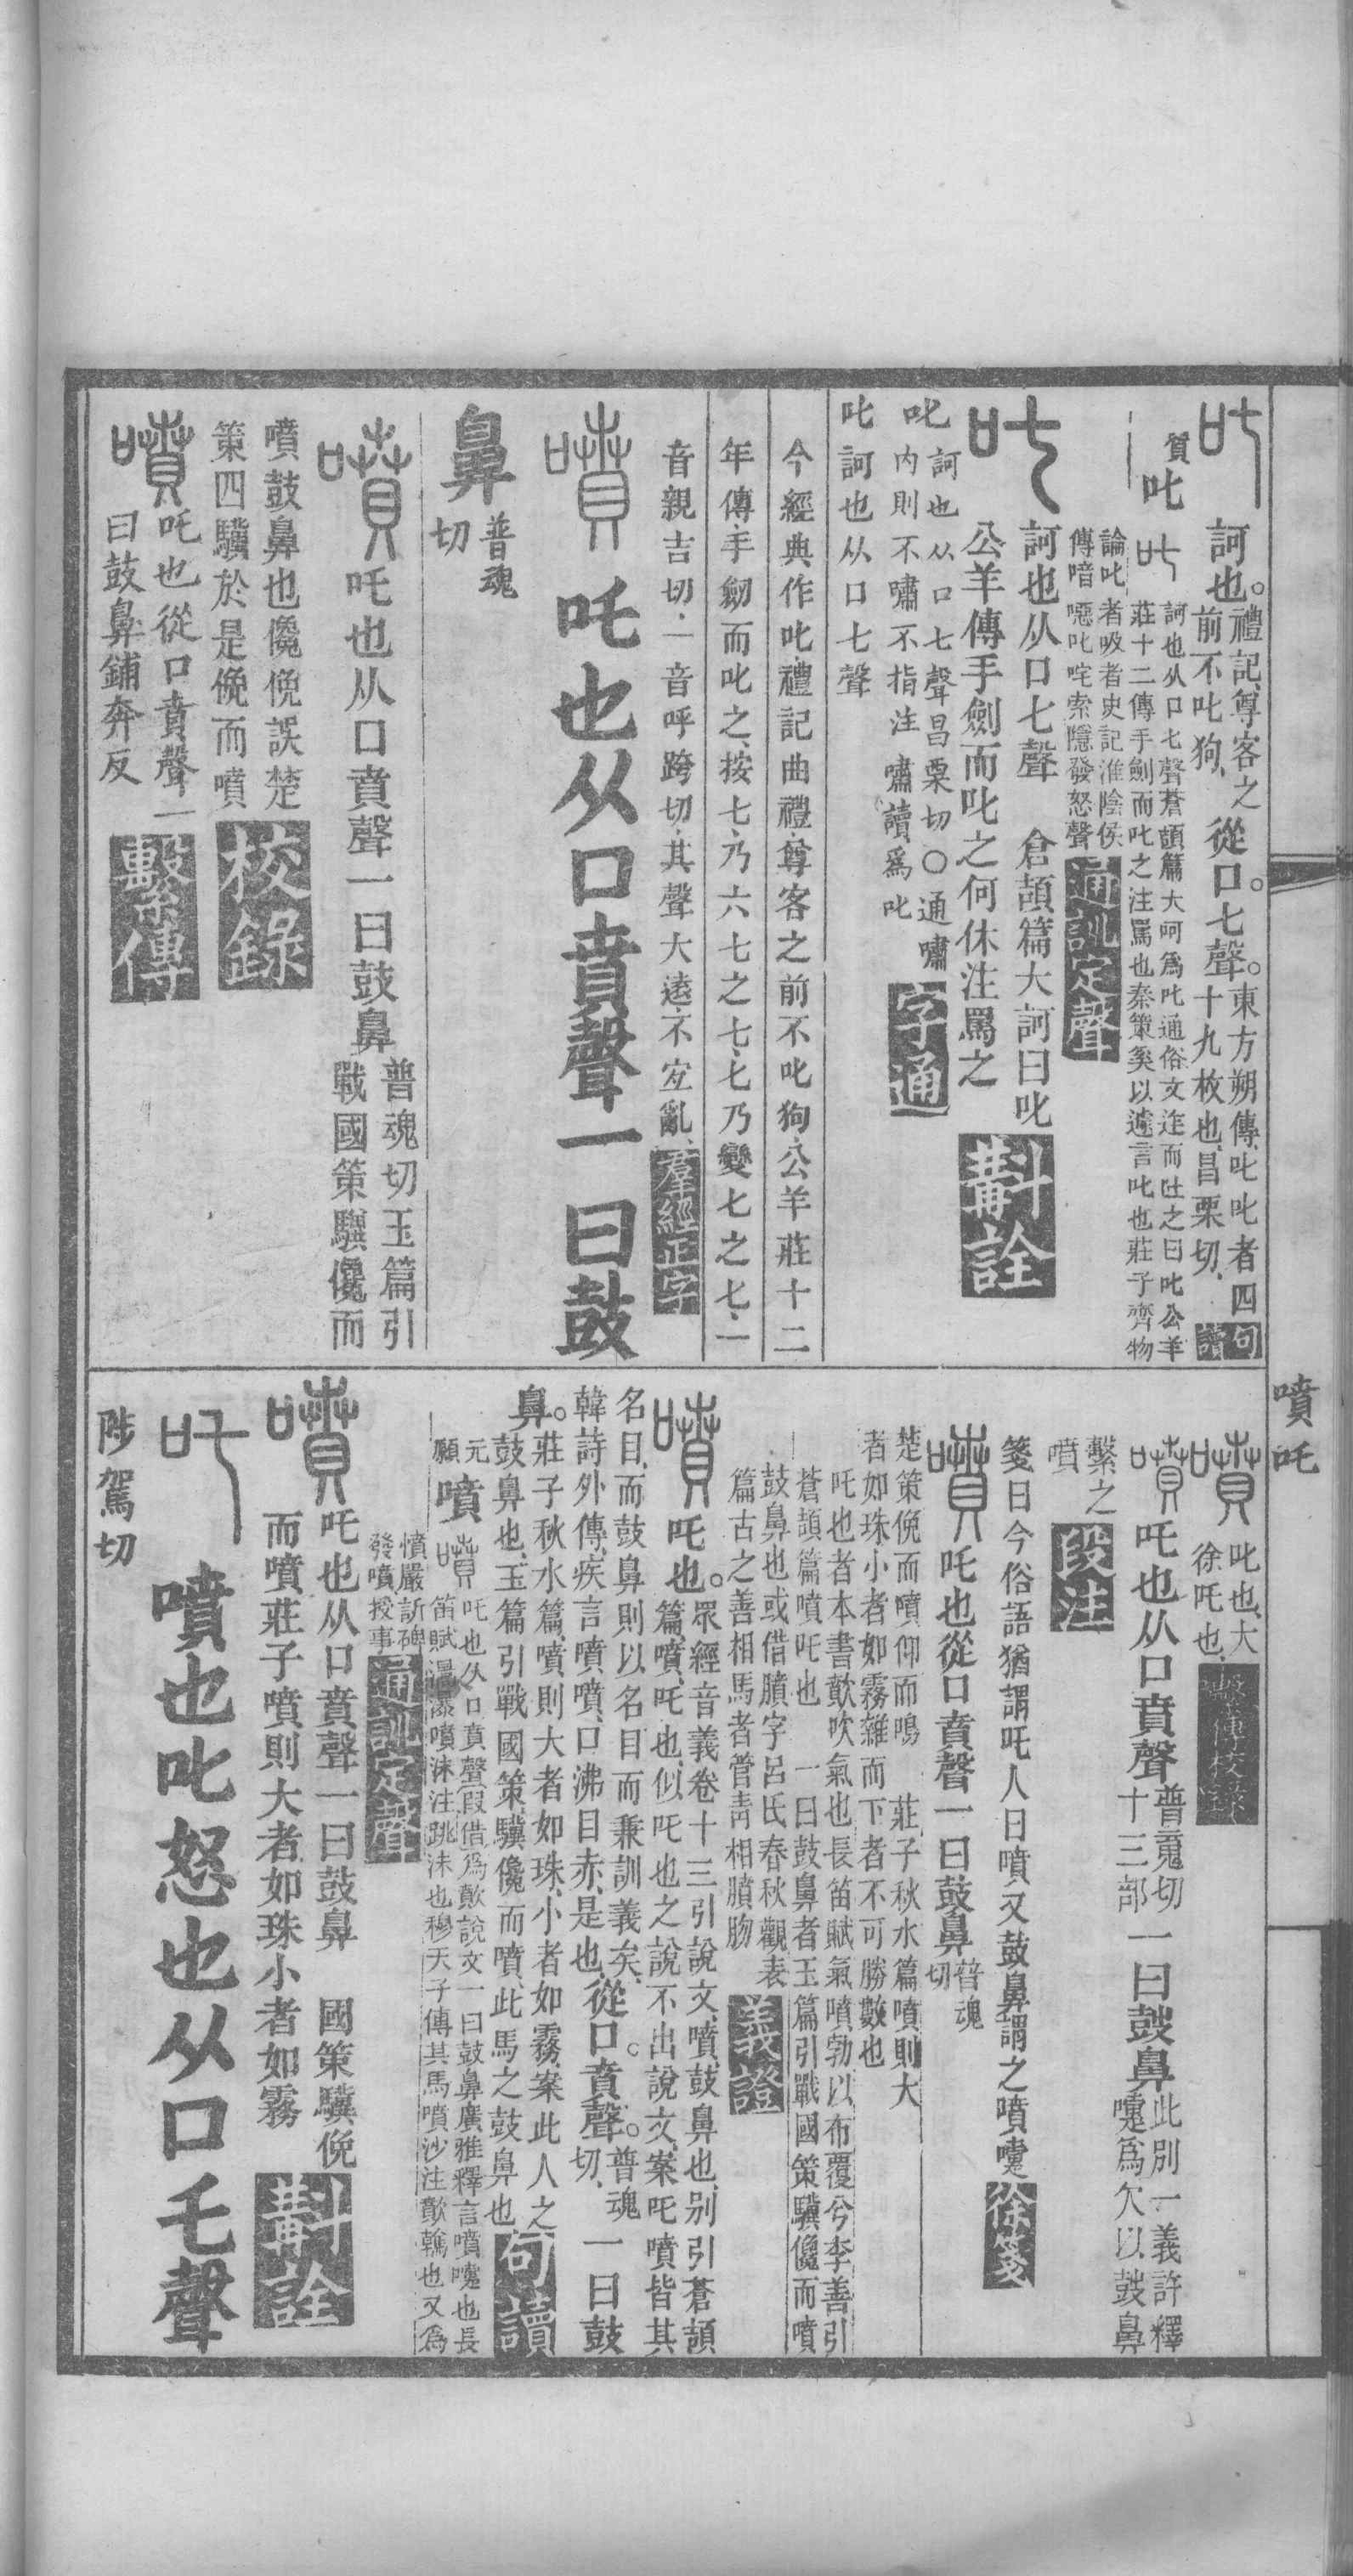 叱
訶也。禮記、尊客之
前不叱狗、從口。七聲。東方朔傳、叱叱者四
十九枚也、昌栗切、句讀
質
叱
叱 訶也从口七聲蒼頡篇大呵爲叱通俗文迮而吐之曰叱公羊
莊十二傳手劍而叱之注罵也秦策奚以遽言叱也莊子齊物
論叱者吸者史記淮陰侯
傳喑噁叱咤索隱發怒聲 通訓定聲
叱 訶也从口七聲 倉頡篇大訶曰叱
公羊傳手劍而叱之何休注罵之 斠詮
叱 訶也从口七聲昌栗切○通嘯
內則不嘯不指注 嘯讀爲叱 字通
叱訶也从口七聲
今經典作叱、禮記曲禮、尊客之前不叱狗、公羊莊十二
年傳、手劒而叱之、按七、乃六七之七、𠤎乃變𠤎之𠤎、一
音親吉切、一音呼跨切、其聲大遠、不宐亂、羣經正字
噴 吒也从口賁聲一曰鼓
鼻 普魂
切
噴 吒也从口賁聲一曰鼓鼻 普魂切玉篇引
戰國策驥俛而
噴鼓鼻也俛誤楚
策四驥於是俛而噴 校錄
噴 吒也從口賁聲一
曰鼓鼻鋪奔反 繫傳
噴 吒
噴 叱也、大
徐吒也、繫傳校錄
噴 吒也从口賁聲 普䰟切
十三部 一曰鼓鼻 此別一義許釋
嚏爲欠以鼓鼻
繫之
噴 段注
箋曰今俗語猶謂吒人曰噴又鼓鼻謂之噴嚏 徐箋
噴 吒也從口賁聲一曰鼓鼻 普魂
切
楚策俛而噴仰而鳴 莊子秋水篇噴則大
者如珠小者如霧雜而下者不可勝數也
吒也者本書歕吹氣也長笛賦氣噴勃以布覆兮李善引
蒼頡篇噴吒也 一曰鼓鼻者玉篇引戰國策驥俛而噴
鼓鼻也或借膹字呂氏春秋觀表
篇古之善相馬者管青相膹肳 義證
噴 吒也。眾經音義卷十三引說文、噴、鼓鼻也、別引蒼頡
篇、噴、吒也、似吒也之說不出說文、案吒噴皆其
名目、而鼓鼻則以名目而兼訓義矣、
韓詩外傳、疾言噴噴、口沸目赤、是也、從口。賁聲。普魂
切、一曰鼓
鼻。莊子秋水篇、噴則大者如珠、小者如霧、案此人之
鼓鼻也、玉篇引戰國策、驥俛而噴、此馬之鼓鼻也 句讀
元
願
噴
噴 吒也从口賁聲〔假借〕爲歕說文一曰鼓鼻廣雅釋言噴嚏也長
笛賦瀑噴沫注跳沫也穆天子傳其馬噴沙注歕翰也又爲
憤嚴訢碑
發噴授事 通訓定聲
噴 吒也从口賁聲一曰鼓鼻 國策驥俛
而噴莊子噴則大者如珠小者如霧 斠詮
吒 噴也叱怒也从口乇聲
陟駕切